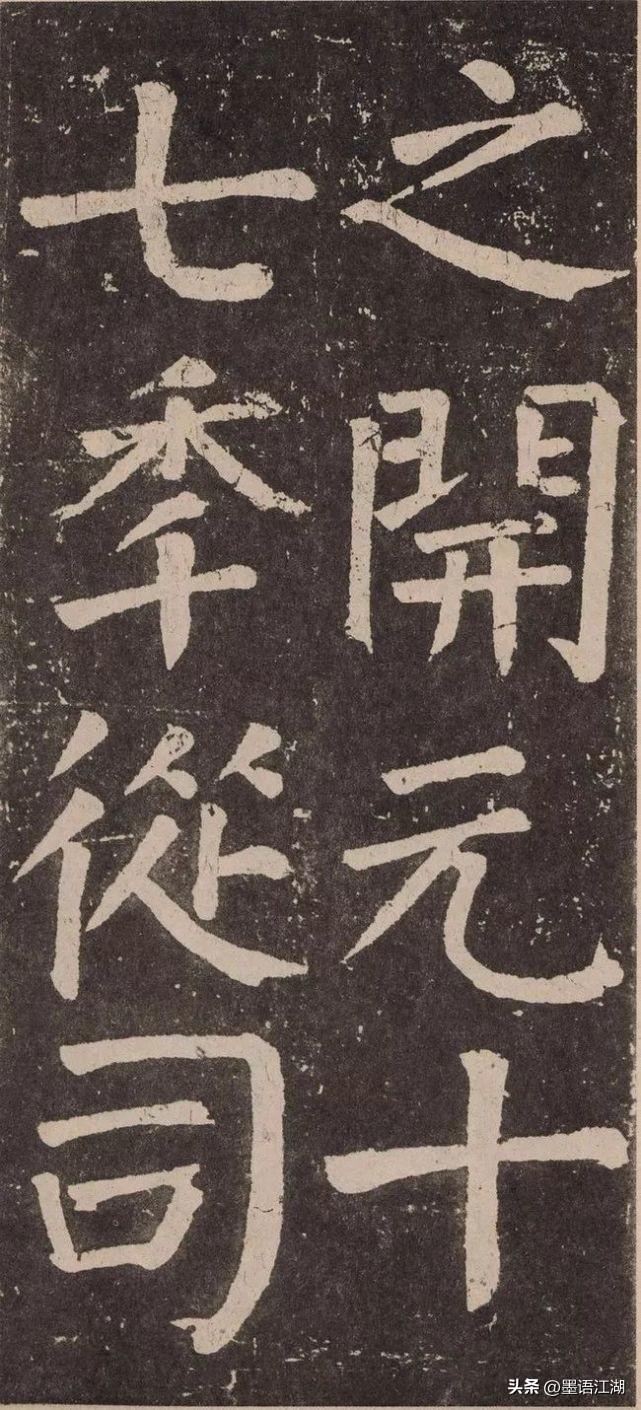 之開元十
七季從司
头条 @墨语江湖